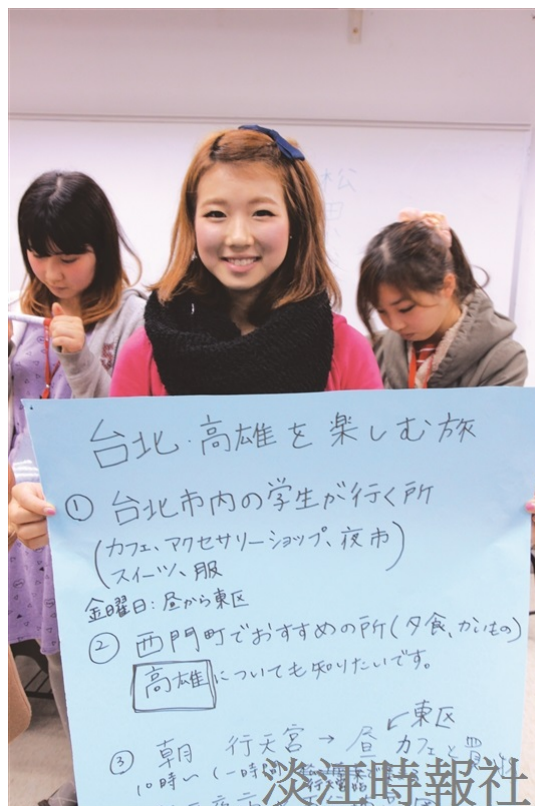 松
田
台北・高雄を楽しむ旅
① 台北市内の学生が行く所
(カフェ、アクセサリーショップ、夜市)
スイーツ、服
金曜日:昼から東区
② 西門町でおすすめの所(夕食、かいもの)
高雄についても知りたいです。
東区
③ 朝 行天宮 → 昼 カフェと買
10時い (一時
淡江時報社